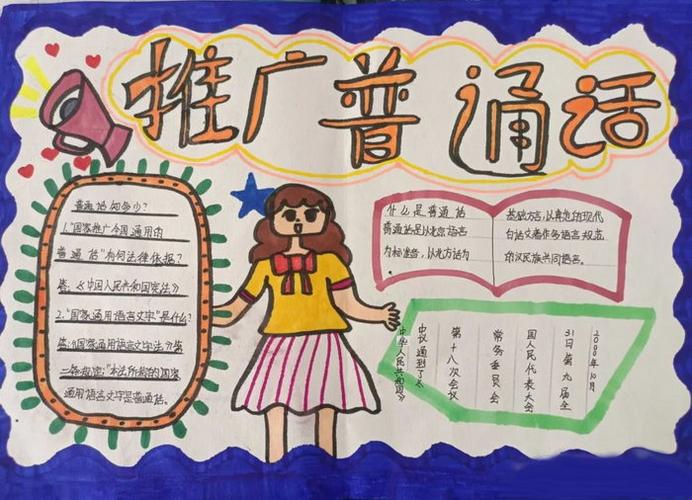 推广普通话
普通话知多少?
1."国家推广全国通用的
普通话"有何法律依据?
答:《中国人民共和国宪法》
2."国家通用语言文字"是什么?
答:《国家通用语言文字法》第
二条规定:"本法所称的国家
通用语言文字是普通话。
什么是普通话
普通话是以北京语言
为标准音,以北方话为
基础方言,以典范的现代
白话文著作为语言规范
的汉民族共同语言。
2000年10月
31日第九届全
国人民代表大会
常务委员会
第十八次会议
中议通到了《
中华人民共和国》